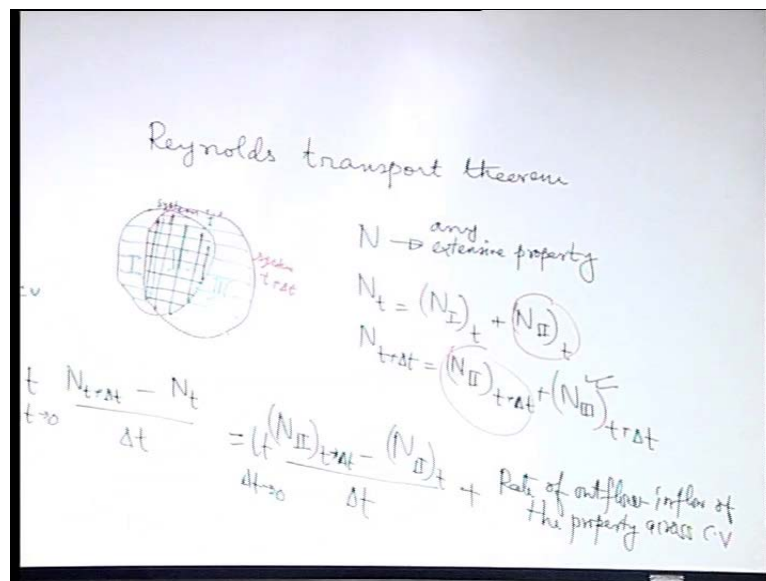 Reynolds transport theorem
system t
I
II
III
system
t+Δt
C.V
N → any
extensive property
N_t = (N_I)_t + (N_II)_t
N_{t+Δt} = (N_II)_{t+Δt} + (N_III)_{t+Δt}
t
t→0
N_{t+Δt} - N_t
Δt
= lt
Δt→0
(N_II)_{t+Δt} - (N_II)_t
Δt
+ Rate of outflow inflow of
the property across C.V